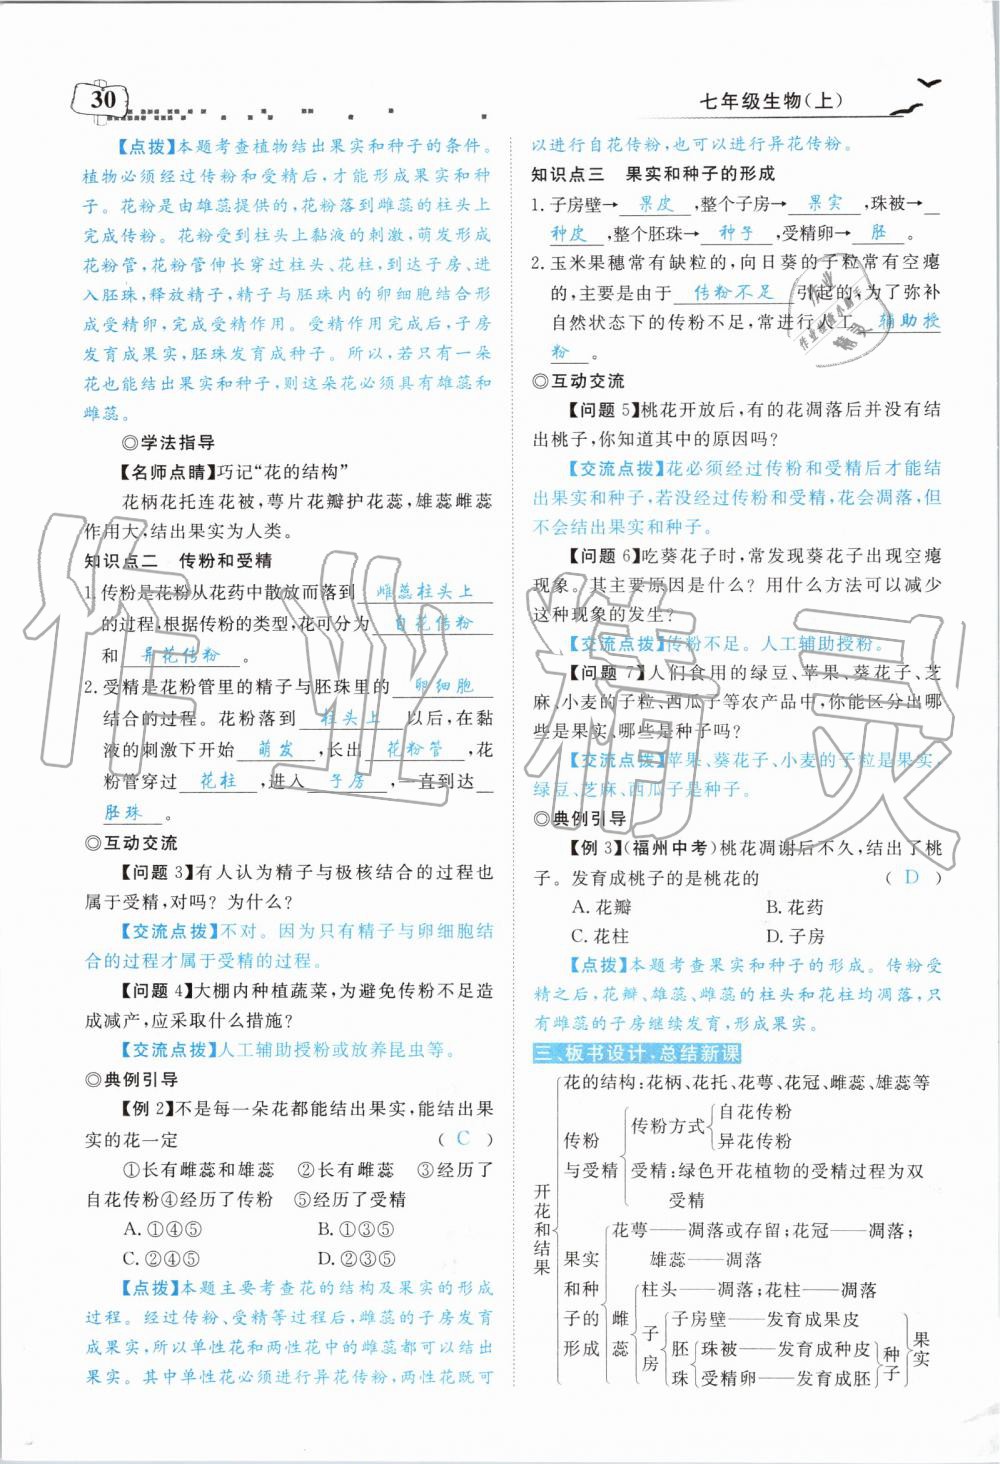 30
七年级生物(上)
【点拨】本题考查植物结出果实和种子的条件。
植物必须经过传粉和受精后,才能形成果实和种
子。花粉是由雄蕊提供的,花粉落到雌蕊的柱头上
完成传粉。花粉受到柱头上黏液的刺激,萌发形成
花粉管,花粉管伸长穿过柱头、花柱,到达子房、进
入胚珠,释放精子,精子与胚珠内的卵细胞结合形
成受精卵,完成受精作用。受精作用完成后,子房
发育成果实,胚珠发育成种子。所以,若只有一朵
花也能结出果实和种子,则这朵花必须具有雄蕊和
雌蕊。
◎学法指导
【名师点睛】巧记“花的结构”
花柄花托连花被,萼片花瓣护花蕊,雄蕊雌蕊
作用大,结出果实为人类。
知识点二 传粉和受精
1.传粉是花粉从花药中散放而落到 雌蕊柱头上
的过程,根据传粉的类型,花可分为 自花传粉
和 异花传粉 。
2.受精是花粉管里的精子与胚珠里的 卵细胞
结合的过程。花粉落到 柱头上 以后,在黏
液的刺激下开始 萌发 ,长出 花粉管 ,花
粉管穿过 花柱 ,进入 子房 ,一直到达
胚珠 。
◎互动交流
【问题 3】有人认为精子与极核结合的过程也
属于受精,对吗? 为什么?
【交流点拨】不对。因为只有精子与卵细胞结
合的过程才属于受精的过程。
【问题 4】大棚内种植蔬菜,为避免传粉不足造
成减产,应采取什么措施?
【交流点拨】人工辅助授粉或放养昆虫等。
◎典例引导
【例 2】不是每一朵花都能结出果实,能结出果
实的花一定 ( C )
①长有雌蕊和雄蕊 ②长有雌蕊 ③经历了
自花传粉④经历了传粉 ⑤经历了受精
A.①④⑤ B.①③⑤
C.②④⑤ D.②③⑤
【点拨】本题主要考查花的结构及果实的形成
过程。经过传粉、受精等过程后,雌蕊的子房发育
成果实,所以单性花和两性花中的雌蕊都可以结出
果实。其中单性花必须进行异花传粉,两性花既可
以进行自花传粉,也可以进行异花传粉。
知识点三 果实和种子的形成
1.子房壁→ 果皮 ,整个子房→ 果实 ,珠被→
种皮 ,整个胚珠→ 种子 ,受精卵→ 胚 。
2.玉米果穗常有缺粒的,向日葵的子粒常有空瘪
的,主要是由于 传粉不足 引起的,为了弥补
自然状态下的传粉不足,常进行人工 辅助授
粉 。
◎互动交流
【问题 5】桃花开放后,有的花凋落后并没有结
出桃子,你知道其中的原因吗?
【交流点拨】花必须经过传粉和受精后才能结
出果实和种子,若没经过传粉和受精,花会凋落,但
不会结出果实和种子。
【问题 6】吃葵花子时,常发现葵花子出现空瘪
现象。其主要原因是什么? 用什么方法可以减少
这种现象的发生?
【交流点拨】传粉不足。人工辅助授粉。
【问题 7】人们食用的绿豆、苹果、葵花子、芝
麻、小麦的子粒、西瓜子等农产品中,你能区分出哪
些是果实、哪些是种子吗?
【交流点拨】苹果、葵花子、小麦的子粒是果实,
绿豆、芝麻、西瓜子是种子。
◎典例引导
【例 3】(福州中考)桃花凋谢后不久,结出了桃
子。发育成桃子的是桃花的 ( D )
A.花瓣 B.花药
C.花柱 D.子房
【点拨】本题考查果实和种子的形成。传粉受
精之后,花瓣、雄蕊、雌蕊的柱头和花柱均凋落,只
有雌蕊的子房继续发育,形成果实。
三、板书设计,总结新课
开花和结果
花的结构:花柄、花托、花萼、花冠、雌蕊、雄蕊等
传粉与受精
传粉方式
自花传粉
异花传粉
受精:绿色开花植物的受精过程为双
受精
果实和种子的形成
花萼——凋落或存留;花冠——凋落;
雄蕊——凋落
雌蕊
柱头——凋落;花柱——凋落
子房
子房壁——发育成果皮
胚珠
珠被——发育成种皮
受精卵——发育成胚
种子
果实
作业精灵